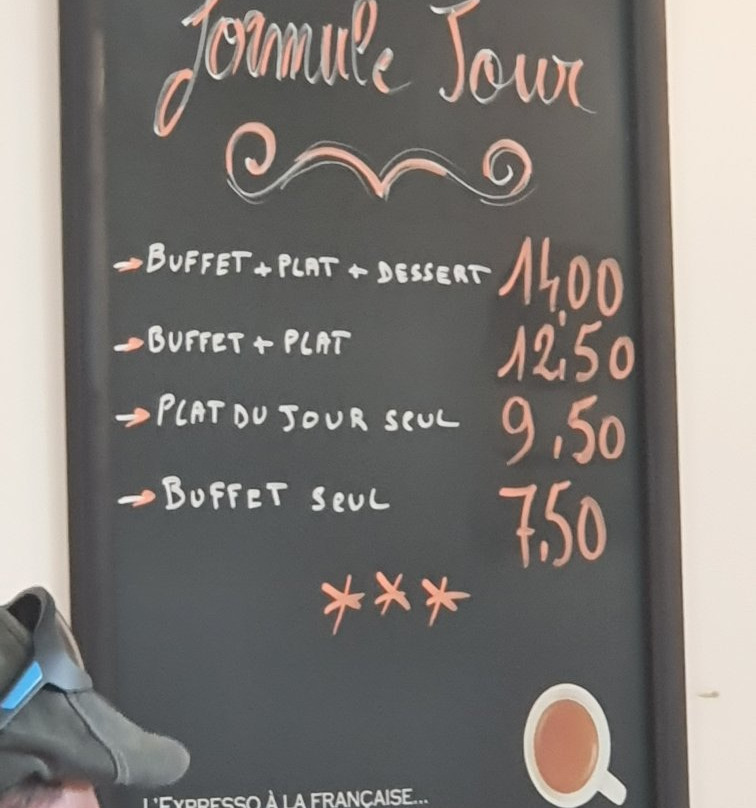 Formule Jour
→ BUFFET + PLAT + DESSERT 14,00
→ BUFFET + PLAT 12,50
→ PLAT DU JOUR SEUL 9,50
→ BUFFET SEUL 7,50
***
L'EXPRESSO À LA FRANÇAISE...